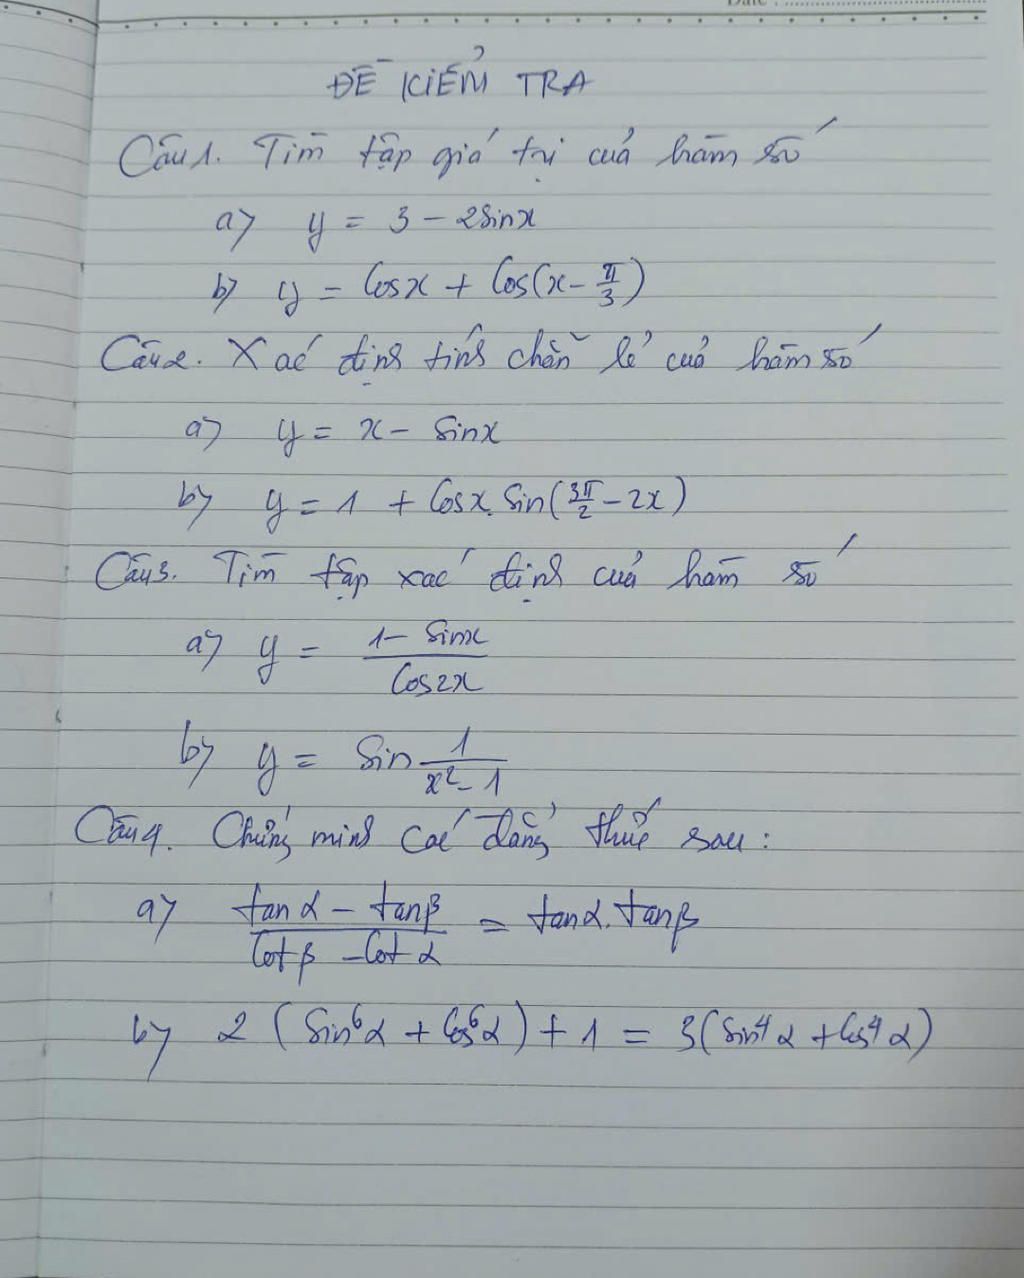 Date :
ĐỀ KIỂM TRA
Câu 1. Tìm tập giá trị của hàm số
a) y = 3 - 2sinx
b) y = Cosx + Cos(x - π/3)
Câu 2. Xác định tính chẵn lẻ của hàm số
a) y = x - Sinx
b) y = 1 + Cosx. Sin(3π/2 - 2x)
Câu 3. Tìm tập xác định của hàm số
a) y = (1 - Sinx)/(Cos2x)
b) y = Sin 1/(x² - 1)
Câu 4. Chứng minh các đẳng thức sau :
a) (tan α - tan β)/(Cot β - Cot α) = tan α. tan β
b) 2 (Sin⁶α + Cos⁶α) + 1 = 3(Sin⁴α + Cos⁴α)